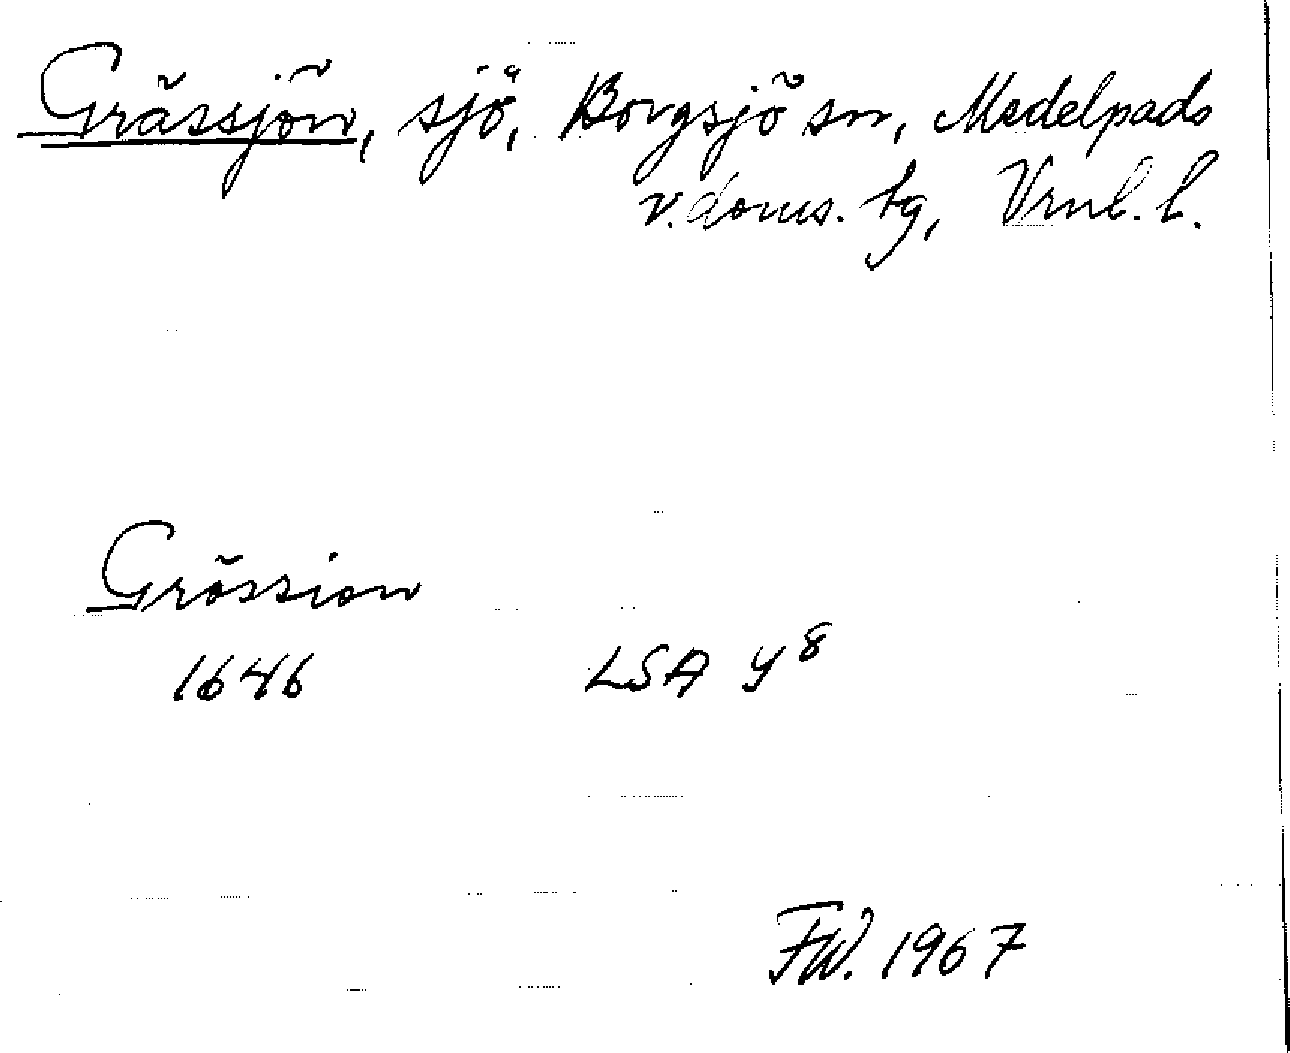 Grässjön, sjö, Borgsjö sn, Medelpads
v. doms. tg, Vrnl. l.
Grössion
1646 LSA y⁸
FW. 1967